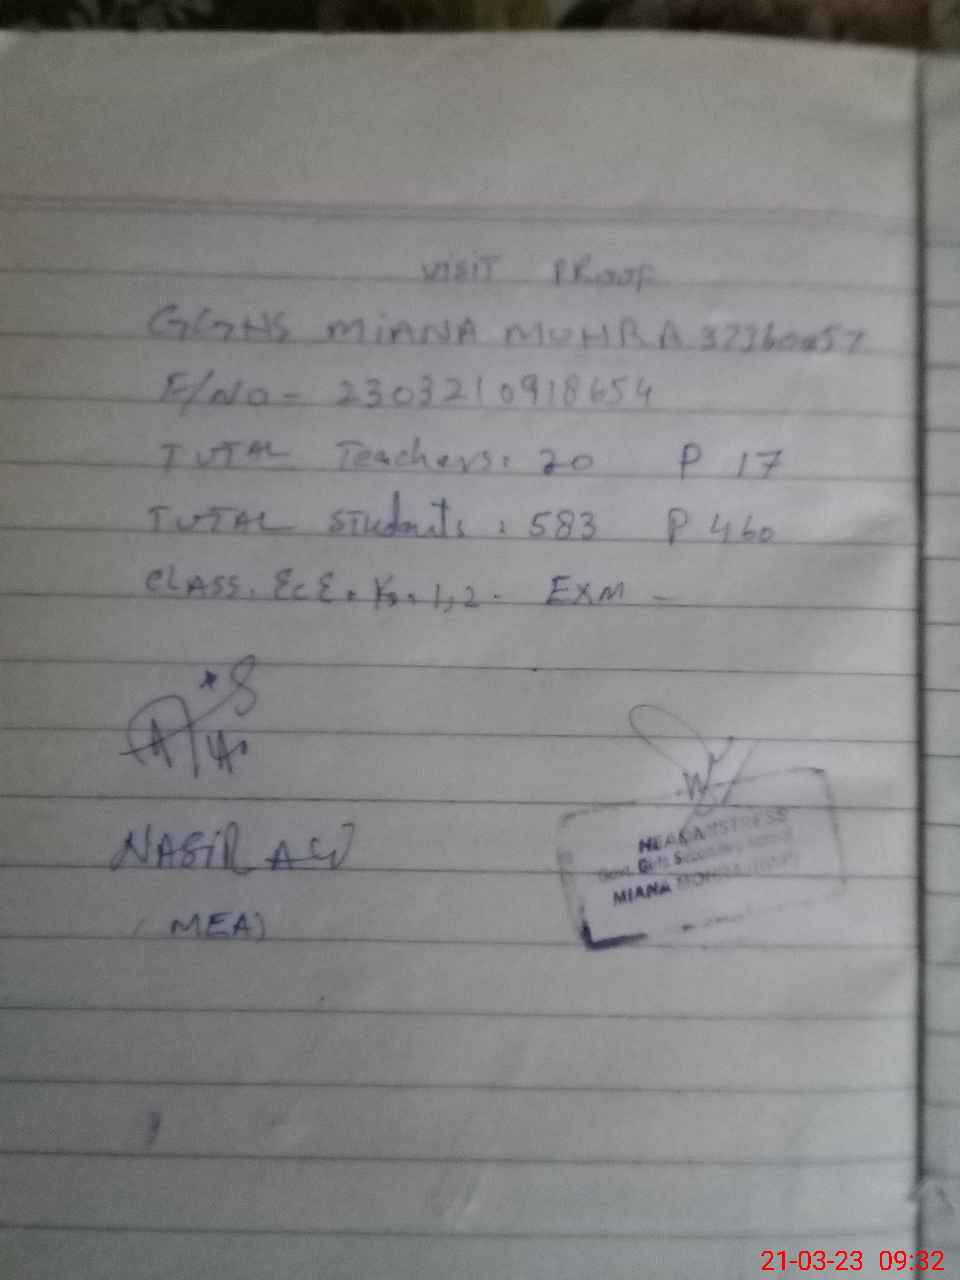 VISIT PROOF
GGHS MIANA MOHRA 37360057
F/NO - 2303210918654
TOTAL Teachers: 20 P 17
TOTAL Students: 583 P 460
CLASS. ECE. 1, 2. EXM -
NASIR ALI
(MEA)
HEADMISTRESS
Govt. Girls Secondary
MIANA MOHRA
21-03-23 09:32